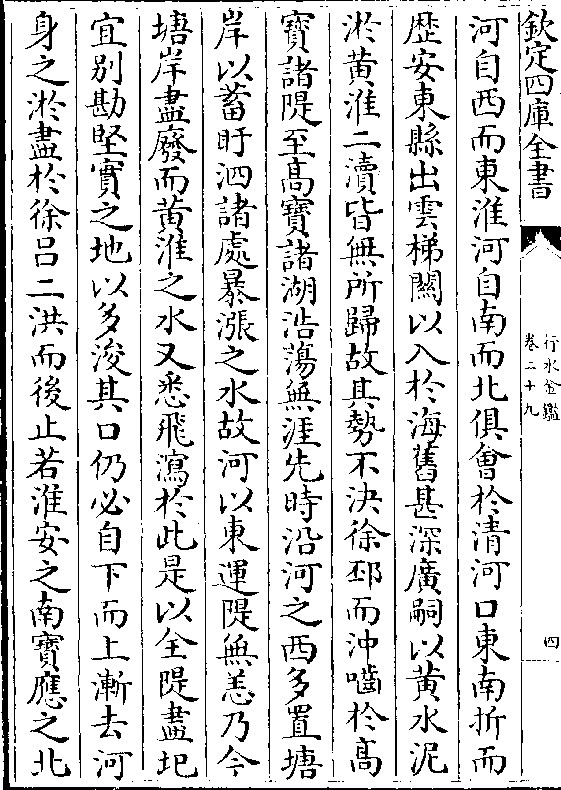 欽定四庫全書
行水金鑑
卷二十九
四
河自西而東淮河自南而北俱會於清河口東南折而
歴安東縣出雲梯關以入於海舊甚深廣嗣以黄水泥
淤黄淮二瀆皆無所歸故其勢不決徐邳而沖嚙於高
寶諸隄至高寶諸湖浩蕩無涯先時沿河之西多置塘
岸以蓄盱泗諸處暴漲之水故河以東運隄無恙乃今
塘岸盡廢而黄淮之水又悉飛瀉於此是以全隄盡圮
宜别勘堅實之地以多浚其口仍必自下而上漸去河
身之淤盡於徐呂二洪而後止若淮安之南寶應之北